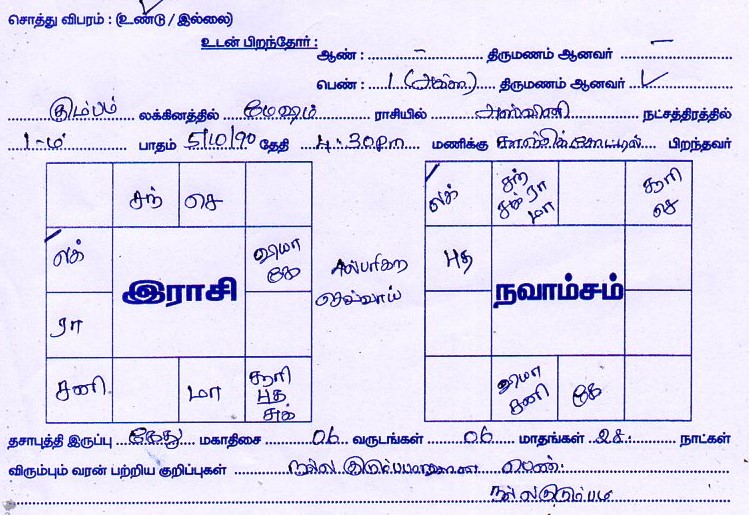 சொத்து விபரம் : (உண்டு / இல்லை)
உடன் பிறந்தோர் :
ஆண் : – திருமணம் ஆனவர் –
பெண் : 1 (அக்கா) திருமணம் ஆனவர் ✓
கும்பம் லக்கினத்தில் மேஷம் ராசியில் அஸ்வினி நட்சத்திரத்தில்
1-ம் பாதம் 5/10/90 தேதி 4.30 Pm மணிக்கு பிறந்தவர்
சந் செ
லக் வியா கே
ரா
சனி மா சூரி புத சுக்
இராசி
செவ்வாய்
லக் சந் சுக் ரா மா சூரி செ
புத
வியா சனி கே
நவாம்சம்
தசாபுத்தி இருப்பு கேது மகாதிசை 06 வருடங்கள் 06 மாதங்கள் 28 நாட்கள்
விரும்பும் வரன் பற்றிய குறிப்புகள் நல்ல பெண்.
நல்ல குடும்பம்